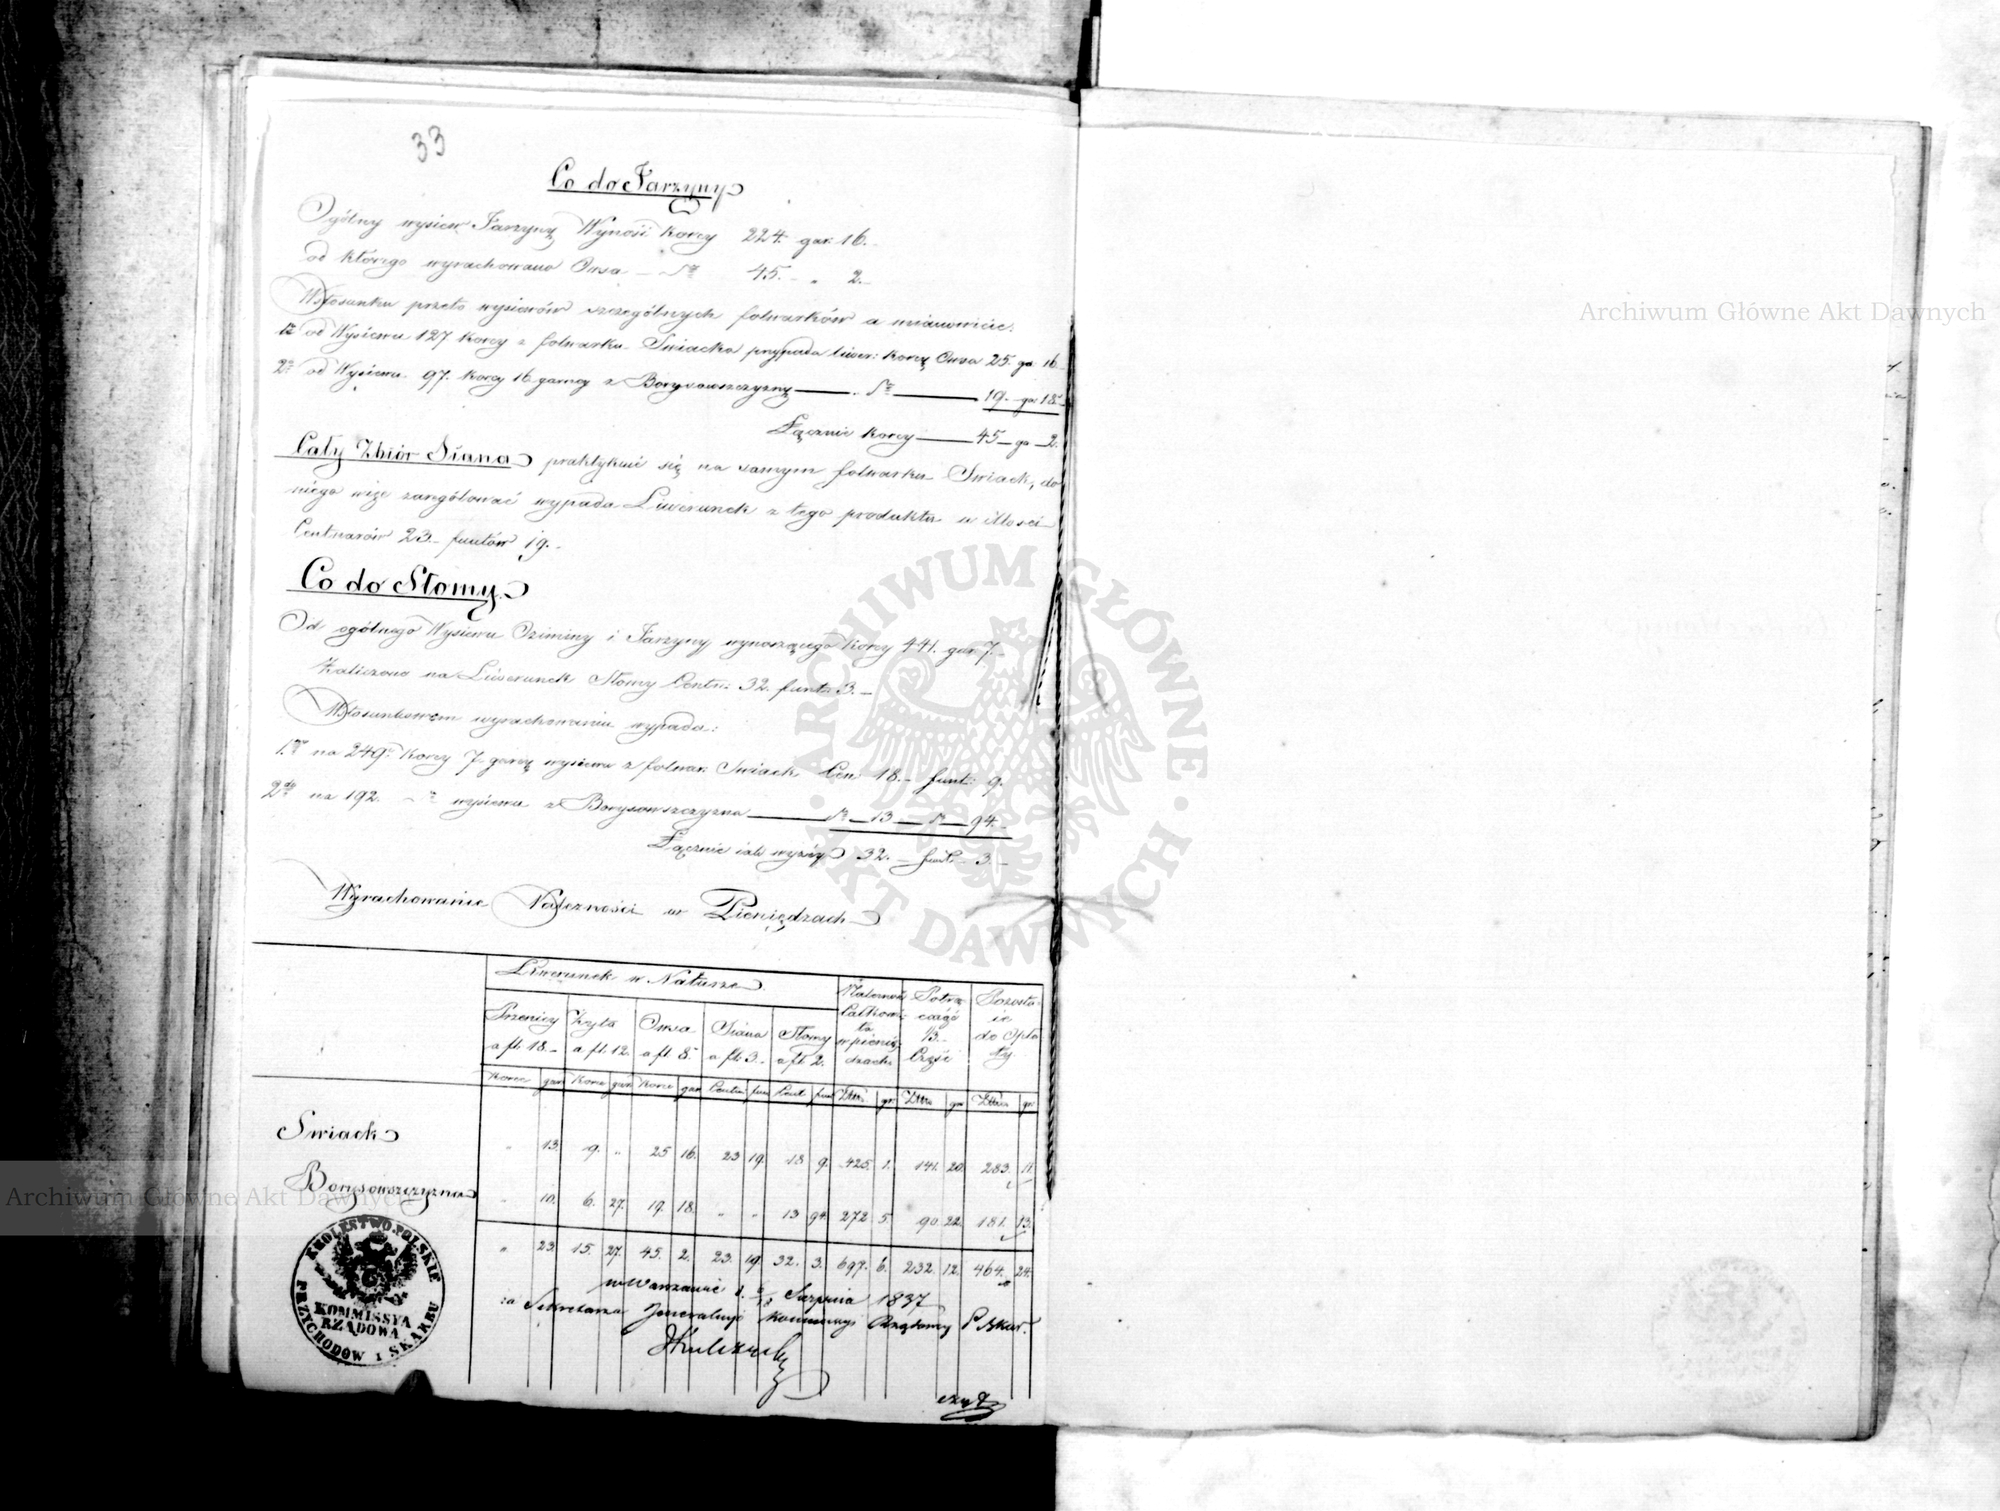 33
Co do Jarzyny
Ogólny wysiew Jarzyny Wynosi Korcy 224. gar. 16.
od którego wyrachowano Owsa — 45. — „ 2. —
W stosunku przeto wysiewów szczególnych folwarków a mianowicie.
1. od Wysiewu 127 Korcy z folwarku Swiacka przypada liwer: Korcy Owsa 25. ga 16
2. od Wysiewu 97. Korcy 16. garncy z Borysowszczyzny — 19. ga 18
Łącznie Korcy — 45 — ga — 2.
Cały Zbiór Siana praktykuie się na samym folwarku Swiack, do
niego więc zaregulować wypada Liwerunek z tego produktu w ilłości
Centnarów 23. funtów 19. —
Co do Słomy
Od ogólnego Wysiewu Oziminy i Jarzyny wynoszącego Korcy 441. gar. 7. —
Zaliczono na Liwerunek Słomy Centn: 32. funt: 3. —
W stosunkowem wyrachowaniu wypada:
1. na 249. Korcy 7. garcy wysiewu z folwar. Swiack Cen 18. — funt: 9.
2. na 192. wysiewu z Borysowszczyzna — 13 — 94. —
Łącznie iak wyżéy 32. — funt. — 3. —
Wyrachowanie Należności w Pieniędzach
Liwerunek w Naturze
Pszenicy a fl. 18. — Żyta a fl. 12. Owsa a fl. 8. Siana a fl. 3. — Słomy a fl. 2. Należność całkowita w pieniędzach Potrąca się 1/3 Część Pozostaie do Opłaty
Korce gar Korce gar Korce gar Centn: fun Cent fun Złtt: gr. Złtt: gr Złttn gr.
Swiack „ 13. 9. „ 25 16. 23 19. 18 9. 425. 1. 141. 20. 283. 11.
Borysowszczyzna „ 10. 6. 27. 19. 18. „ „ 13 94. 272 5. 90. 22. 181. 13.
„ 23. 15. 27. 45. 2. 23. 19. 32. 3. 697. 6. 232. 12. 464. 24.
w Warszawie d. Sierpnia 1837
za Sekretarza Jeneralnego Kommissyi Rządowey P. i Skar.
KROLESTWO POLSKIE
KOMMISSYA
RZĄDOWA
PRZYCHODOW I SKARBU
ARCHIWUM GŁÓWNE AKT DAWNYCH
Archiwum Główne Akt Dawnych
Archiwum Główne Akt Dawnych